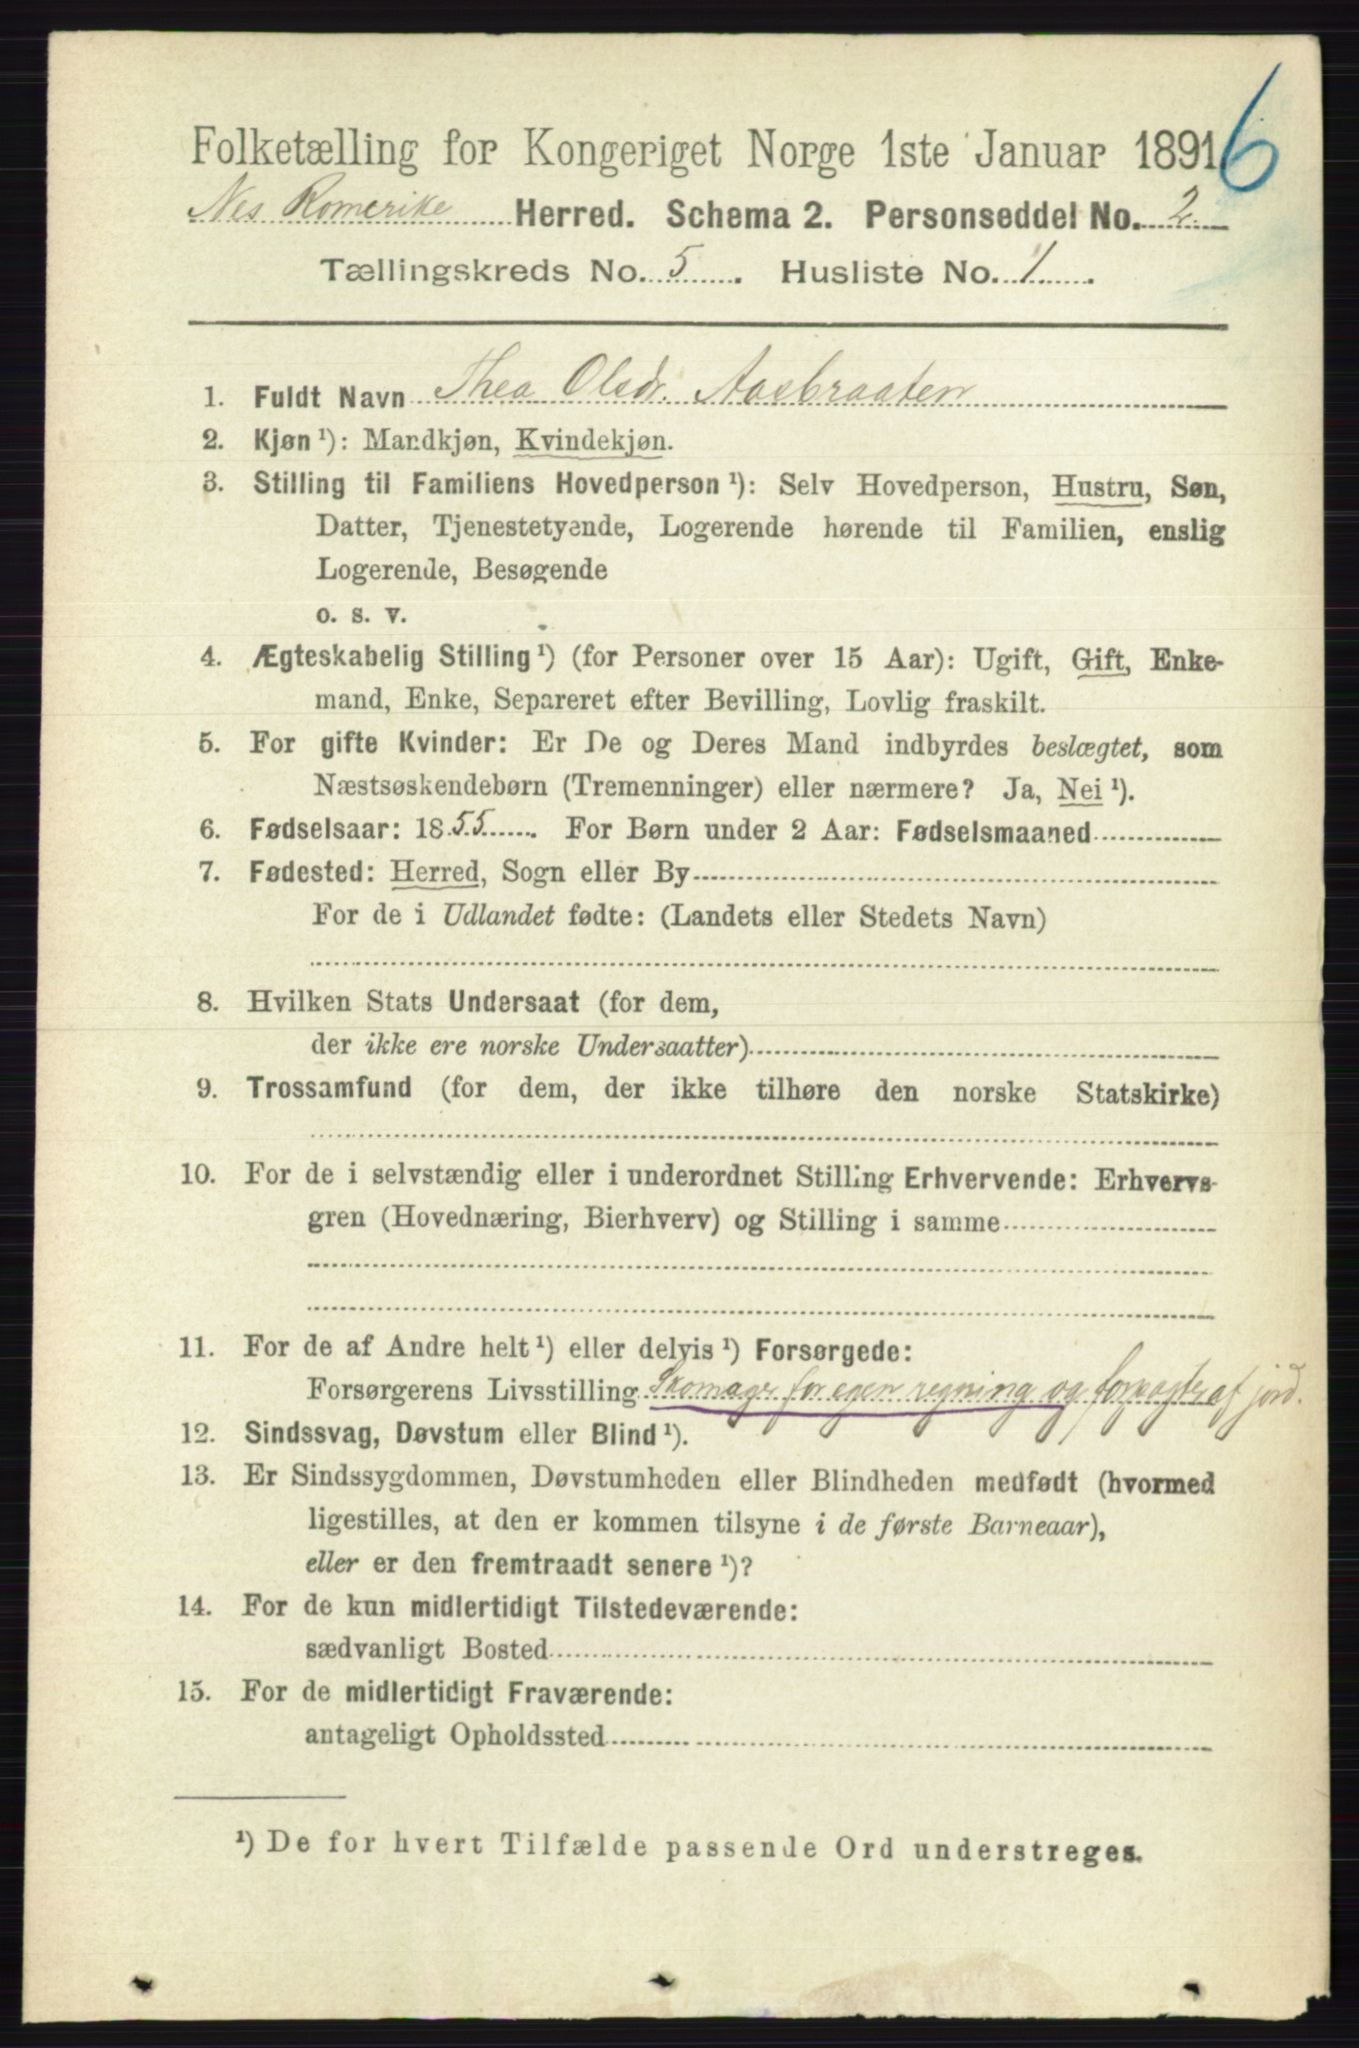 6
Folketælling for Kongeriget Norge 1ste Januar 1891
Nes Romerike Herred. Schema 2. Personseddel No. 2.
Tællingskreds No. 5. Husliste No. 1.
1. Fuldt Navn Thea Olsdr. Aasbraaten
2. Kjøn¹): Mandkjøn, Kvindekjøn.
3. Stilling til Familiens Hovedperson¹): Selv Hovedperson, Hustru, Søn,
Datter, Tjenestetyende, Logerende hørende til Familien, enslig
Logerende, Besøgende
o. s. v.
4. Ægteskabelig Stilling¹) (for Personer over 15 Aar): Ugift, Gift, Enke-
mand, Enke, Separeret efter Bevilling, Lovlig fraskilt.
5. For gifte Kvinder: Er De og Deres Mand indbyrdes beslægtet, som
Næstsøskendebørn (Tremenninger) eller nærmere? Ja, Nei¹).
6. Fødselsaar: 1855. For Børn under 2 Aar: Fødselsmaaned
7. Fødested: Herred, Sogn eller By
For de i Udlandet fødte: (Landets eller Stedets Navn)
8. Hvilken Stats Undersaat (for dem,
der ikke ere norske Undersaatter)
9. Trossamfund (for dem, der ikke tilhøre den norske Statskirke)
10. For de i selvstændig eller i underordnet Stilling Erhvervende: Erhvervs-
gren (Hovednæring, Bierhverv) og Stilling i samme
11. For de af Andre helt¹) eller delvis¹) Forsørgede:
Forsørgerens Livsstilling Skomager for egen regning og forpagter af jord.
12. Sindssvag, Døvstum eller Blind¹).
13. Er Sindssygdommen, Døvstumheden eller Blindheden medfødt (hvormed
ligestilles, at den er kommen tilsyne i de første Barneaar),
eller er den fremtraadt senere¹)?
14. For de kun midlertidigt Tilstedeværende:
sædvanligt Bosted
15. For de midlertidigt Fraværende:
antageligt Opholdssted
¹) De for hvert Tilfælde passende Ord understreges.